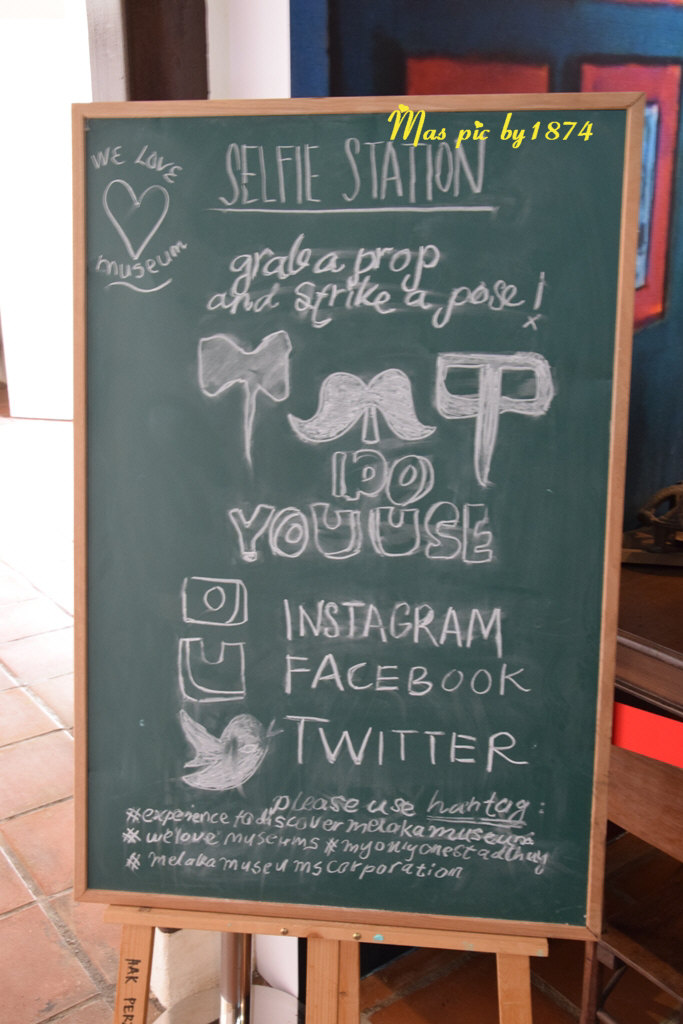 Mas pic by 1874
WE LOVE
museum
SELFIE STATION
grab a prop
and strike a pose!
DO
YOU USE
INSTAGRAM
FACEBOOK
TWITTER
please use hahtag:
#experiencetodiscovermelakamuseums
#welovemuseums #myonlyonestadthuy
#melakamuseumscorporation
HAK PER